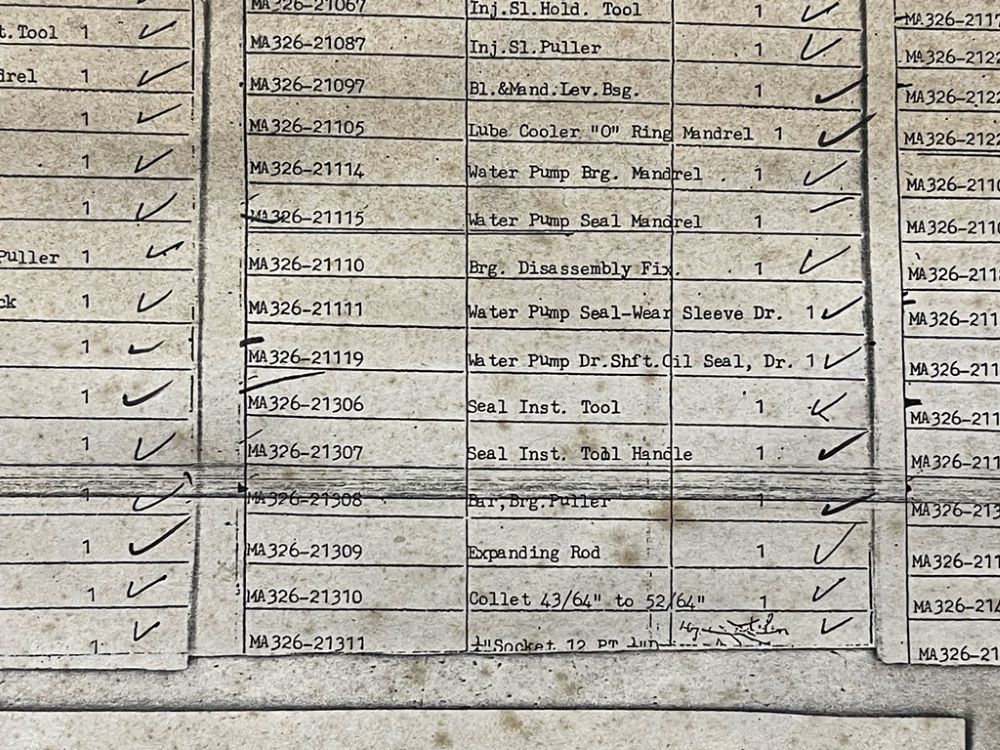 t.Tool 1
drel 1
1
1
1
Puller 1
ck 1
1
1
1
1
1
1
1
MA326-21067 Inj.Sl.Hold. Tool 1
MA326-21087 Inj.Sl.Puller 1
MA326-21097 Bl.&Mand.Lev.Bsg. 1
MA326-21105 Lube Cooler "O" Ring Mandrel 1
MA326-21114 Water Pump Brg. Mandrel 1
MA326-21115 Water Pump Seal Mandrel 1
MA326-21110 Brg. Disassembly Fix. 1
MA326-21111 Water Pump Seal-Wear Sleeve Dr. 1
MA326-21119 Water Pump Dr.Shft.Oil Seal, Dr. 1
MA326-21306 Seal Inst. Tool 1
MA326-21307 Seal Inst. Tool Handle 1
MA326-21308 Bar,Brg.Puller 1
MA326-21309 Expanding Rod 1
MA326-21310 Collet 43/64" to 52/64" 1
MA326-21311 Socket 12 PT
MA326-2117
MA326-2122
MA326-2122
MA326-2122
MA326-2110
MA326-2110
MA326-211
MA326-211
MA326-211
MA326-211
MA326-211
MA326-213
MA326-211
MA326-214
MA326-21